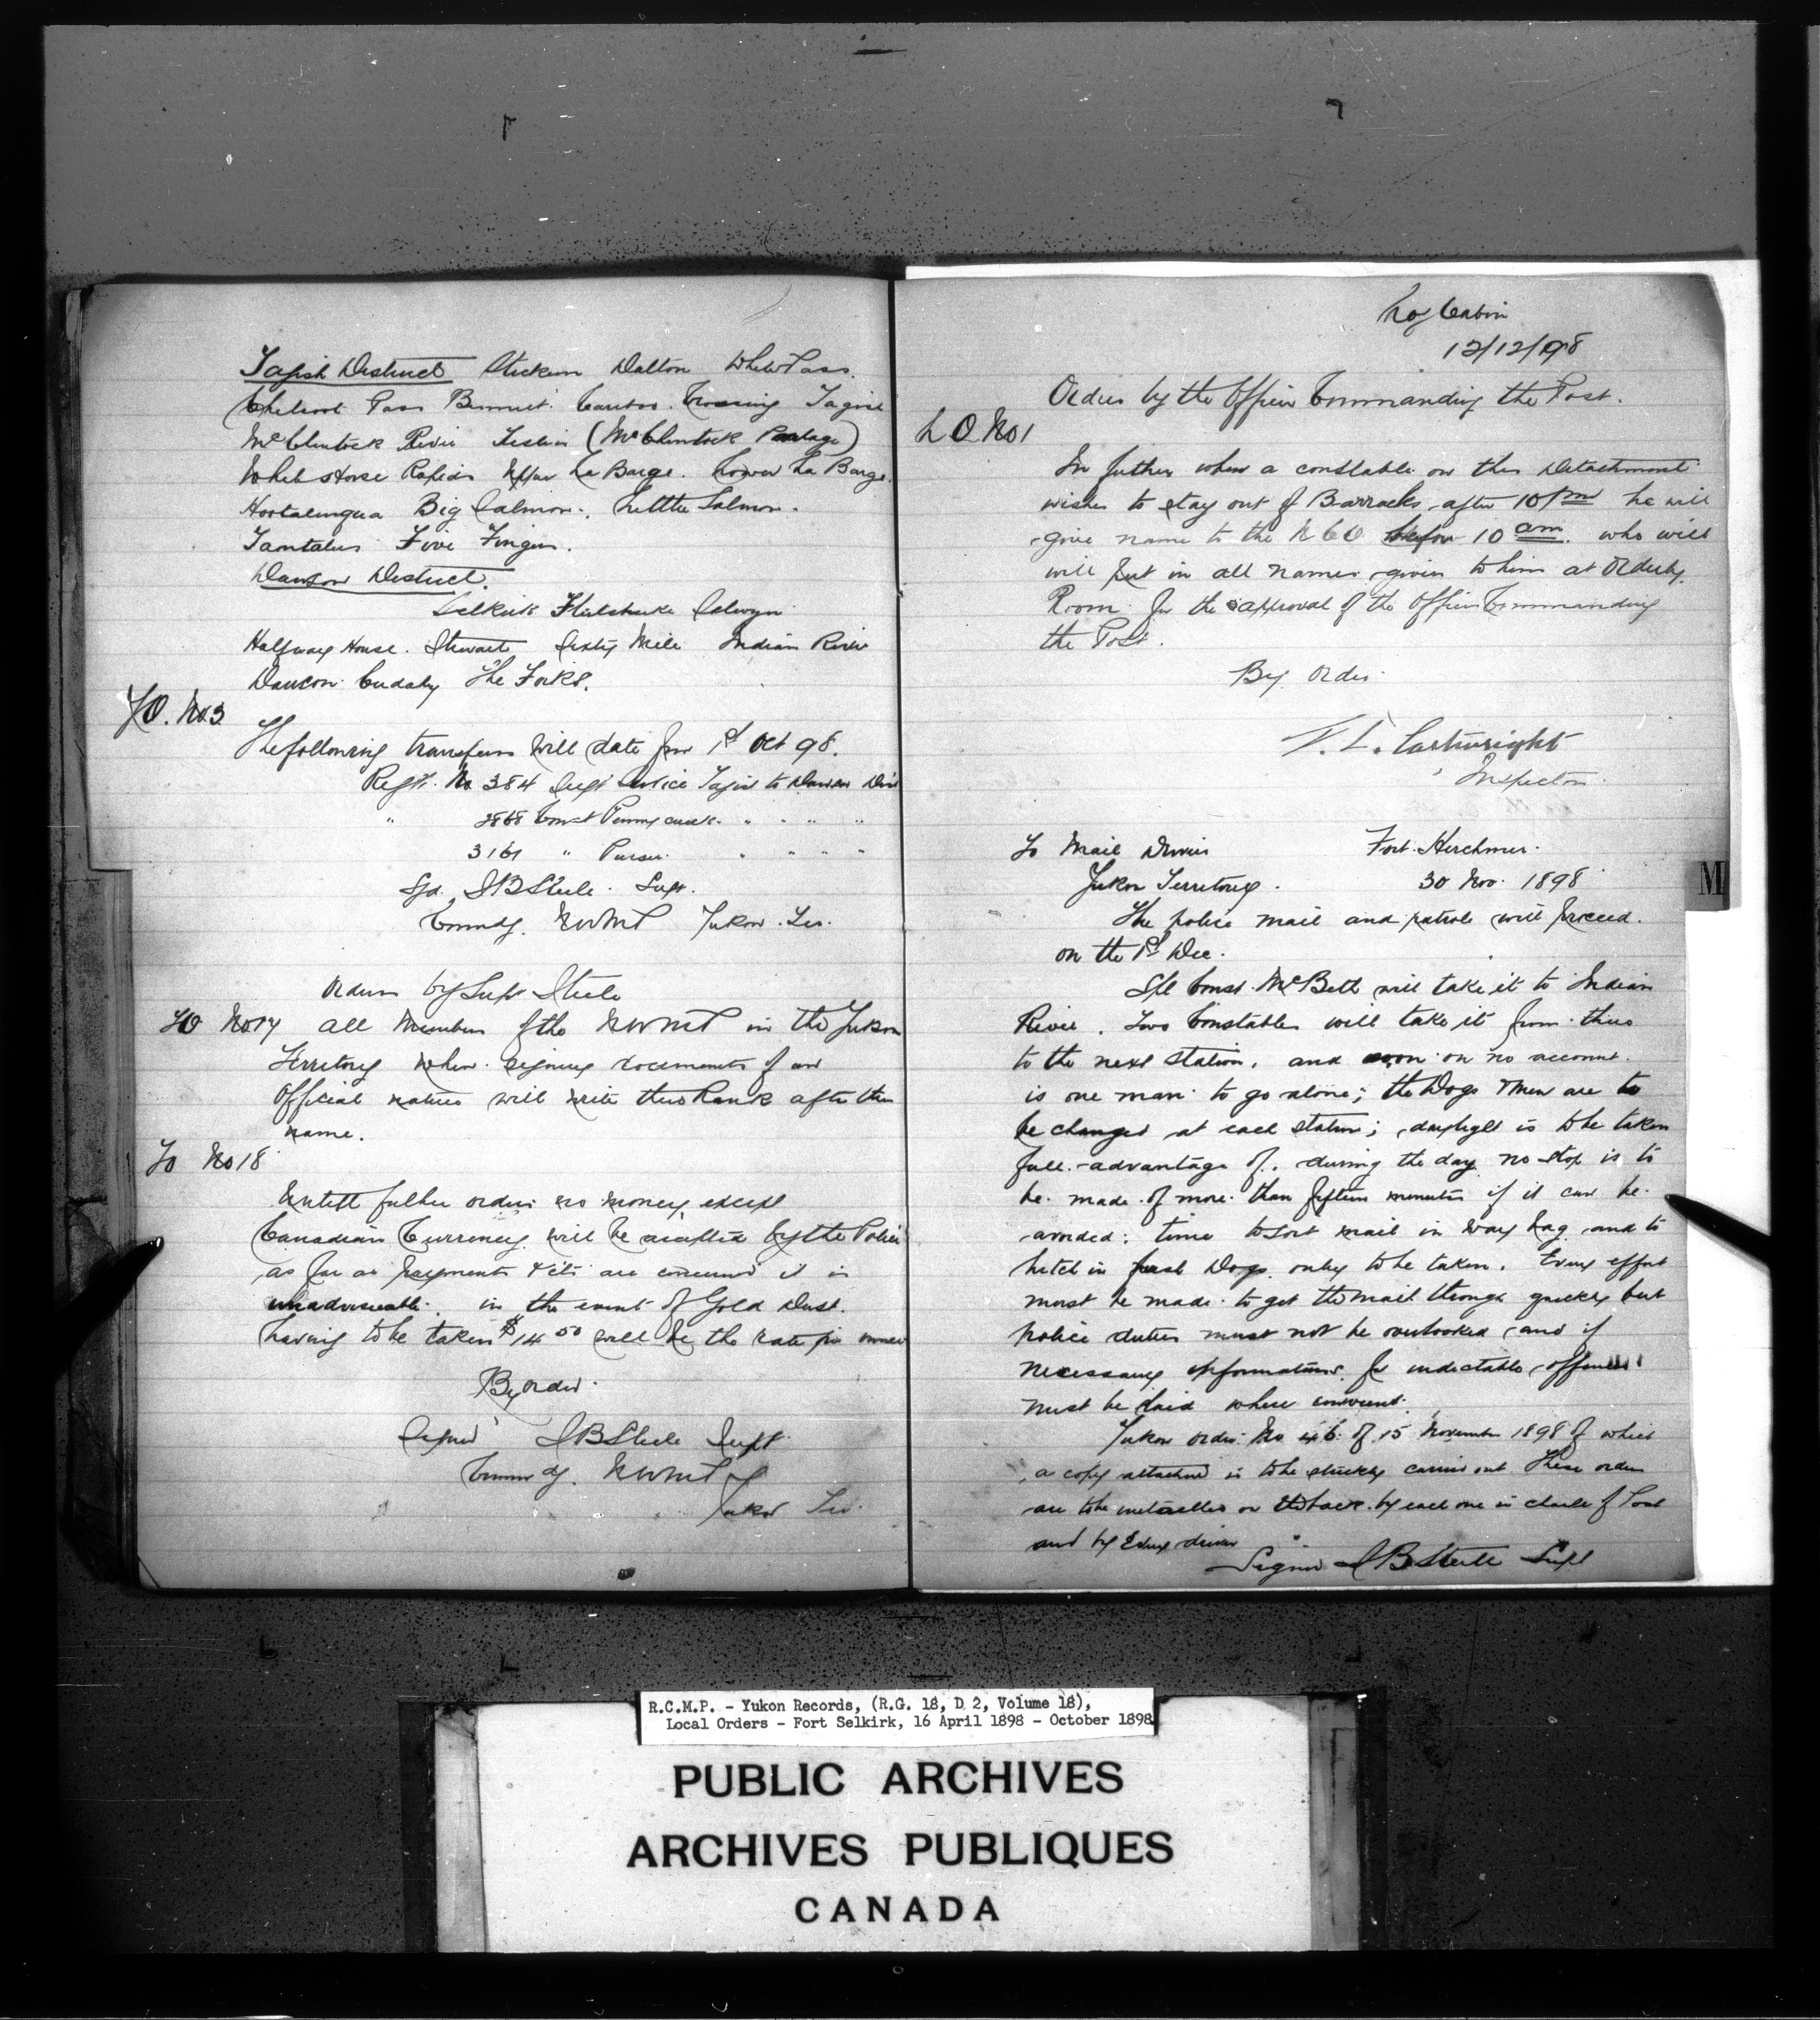 Tagish District Stickeen Dalton White Pass.
Chilcoot Pass Bennet. Caribou Crossing Tagish
McClintock River Teslin (McClintock Portage)
White Horse Rapids Upper La Barge. Lower La Barge.
Hootalinqua Big Salmon. Little Salmon.
Tantalus Five Fingers.
Dawson District.
Selkirk Selwyn
Halfway House. Stewart Sixty Mile Indian River
Dawson Cudahy The Forks.
YO. No.3
The following transfers will date from 1st Oct 98.
Regt. No 384 Tagish to Dawson Dist
" 2868 Const Pennycuick " " " "
3161 " Purser. " " " "
Sgd. SBSteele. Supt.
Commdg. NWMP Yukon Ter.
Orders by Supt Steele
YO No17 All Members of the NWMP in the Yukon
Territory when signing documents of an
Official nature will write their Rank after their
name.
YO No 18
Untill futher orders no money except
Canadian Currency will be accepted by the Police
as far as payments etc are concerned it is
unadviseable. in the event of Gold Dust.
having to be taken $14 50 will be the rate per ounce
By order.
Signed SBSteele Supt.
Commdg. NWMP
Yukon Ter.
Log Cabin
12/12/98
Orders by the Officer Commanding the Post.
L O No1
In futher when a constable on this Detachment
wishes to stay out of Barracks after 10 pm he will
give name to the NCO before 10 am. who will
will put in all names given to him at Orderly
Room for the approval of the Officer Commanding
the Post.
By Order
Cartwright
Inspector.
To Mail Drivers Fort Herchmer.
Yukon Territory. 30 Nov. 1898
The police mail and patrole will proceed.
on the 1st Dec.
Spl Const. McBeth will take it to Indian
River. Two Constables will take it from there
to the next station. and on no account.
is one man to go alone; the Dogs & Men are to
be changed at each station; daylight is to be taken
full advantage of. during the day no stop is to
be made of more than fifteen minutes if it can be
avoided; time to sort mail in way bag and to
hitch in fresh Dogs only to be taken. Every effort
must be made to get the mail through quickly but
police duties must not be overlooked and if
necessary informations for indictable offences
must be laid where
Yukon order No 46 of 15 November 1898 of which
a copy attached is to be strickly carried out These orders
are to be initialled on the back by each one in charge of Post
and by Every driver
Signed SBSteele Supt
M
R.C.M.P. - Yukon Records, (R.G. 18, D 2, Volume 18),
Local Orders - Fort Selkirk, 16 April 1898 - October 1898
PUBLIC ARCHIVES
ARCHIVES PUBLIQUES
CANADA